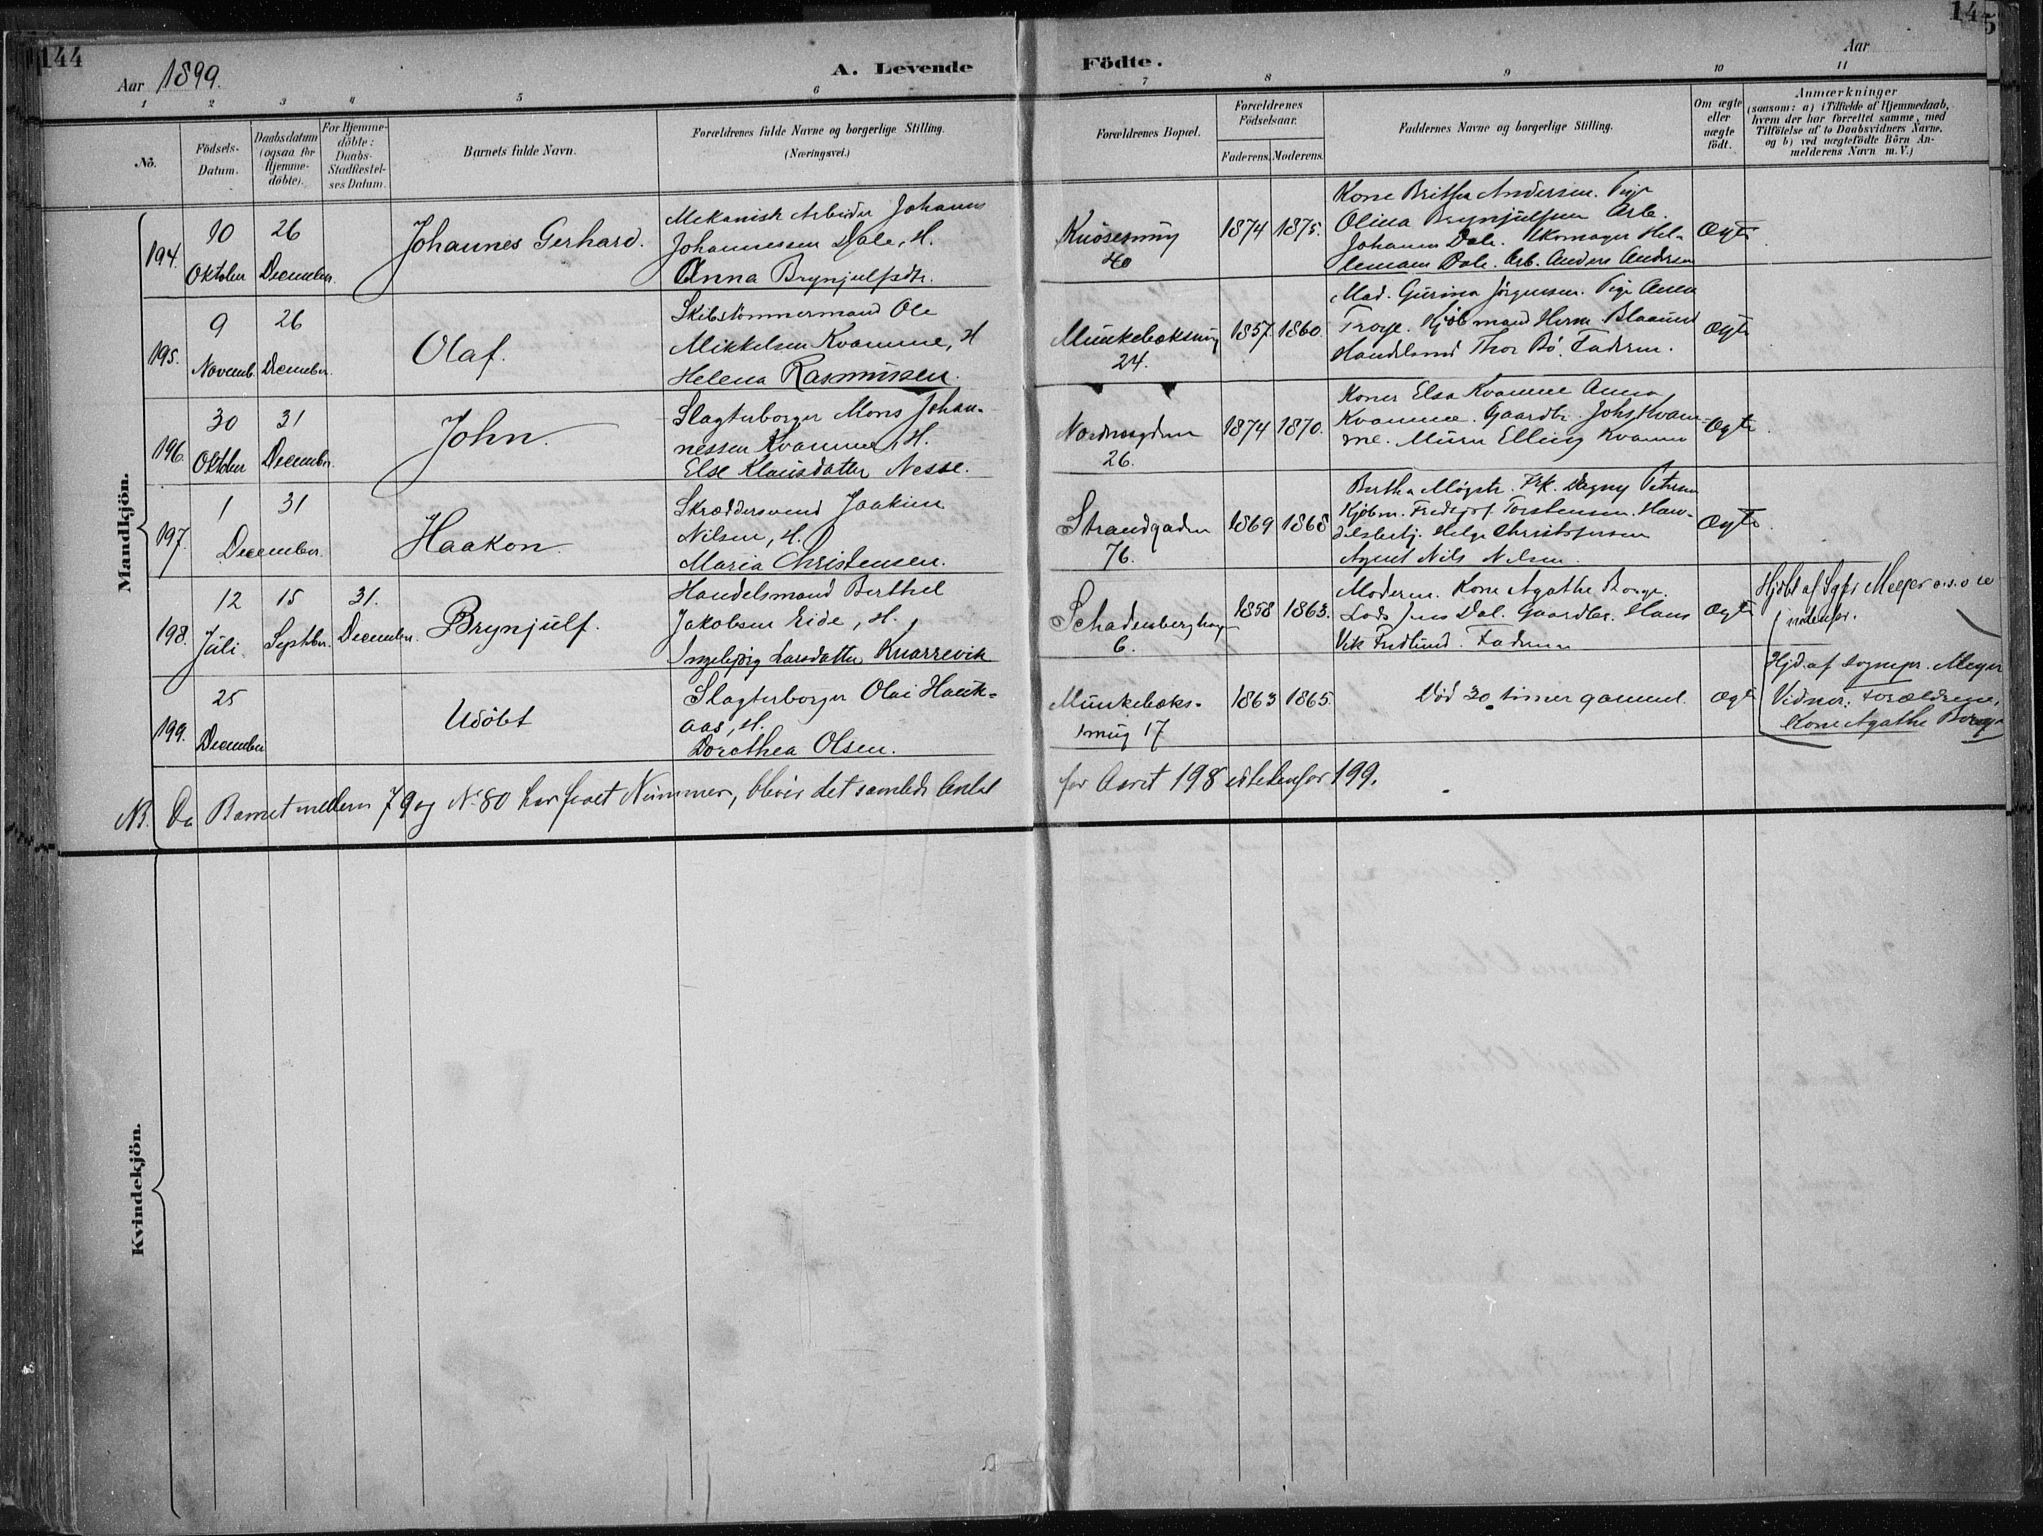 144
145
Aar 1899.
A. Levende Födte.
Aar
1 2 3 4 5 6 7 8 9 10 11
Nö.
Födsels-Datum.
Daabsdatum (ogsaa for Hjemme-döbte).
For Hjemme-döbte: Daabs-Stadfæstel-ses Datum.
Barnets fulde Navn.
Forældrenes fulde Navne og borgerlige Stilling. (Næringsvei.)
Forældrenes Bopæl.
Forældrenes Födselsaar.
Faderens. Moderens.
Faddernes Navne og borgerlige Stilling.
Om ægte eller uægte födt.
Anmærkninger
(saasom: a) i Tilfælde af Hjemmedaab,
hvem der har forrettet samme, med
Tilföielse af to Daabsvidners Navne.
og b) ved uægtefödte Börn An-
melderens Navn m. V.)
Mandkjön.
194.
10 Oktober
26 December
Johannes Gerhard.
Mekanisk Arbeider Johannes
Johannessen Dale, H.
Anna Brynjulfsdtr.
Knösesmug
40
1874 1875.
Kone Britha Andersen. Pige
Olina Brynjulfsen Arb.
Johannes Dale. Skomager Hel-
lemann Dale. Arb. Anders Andersen
Ægte
195.
9 Novemb.
26 December
Olaf.
Skibstömmermand Ole
Mikkelsen Kvamme, H
Helena Rasmussen.
Munkebæksmug
24.
1857 1860.
Mad. Gurina Jörgensen. Pige Anna
Troye. Kjöbmand Herm
Handelsmd Thor Bö. Faderen.
Ægte
196.
30 Oktober
31 December
John.
Slagterborger Mons Johan-
nessen Kvamme, H.
Else Klausdatter Nesse.
Nordnæsgaden
26.
1874 1870.
Koner Elsa Kvamme Anna
Kvamme. Gaardbr. Johs Kvam-
me. Murer Elling Kvamme
Ægte
197.
1 December
31
Haakon.
Skræddersvend Joakim
Nilsen, H.
Maria Christensen.
Strandgaden
76.
1869 1868
Bertha Mögster. Frk. Dagny Petersen
Kjöbm. Fredtjof Torstensen. Han-
delsbetj. Helge Christophersen
Agent Nils Nelsen.
Ægte
198.
12 Juli
15 Septber.
31. December.
Brynjulf.
Handelsmand Berthel
Jakobsen Eide, H.
Ingebjörg Larsdatter Knarrevik
Schadenberghagen
6.
1858 1863.
Moderen. Kone Agathe Borge.
Lods Jens Dal. Gaardbr. Hans
Vik Fredlund. Faderen
Ægte
Hjdbt af Sgpr Meyer
199.
25 December
Udöbt
Slagterborger Olai Hauk-
aas, H.
Dorothea Olsen.
Munkebæks-
smug 17
1863 1865.
Död 30 timer gammel.
Ægte
Hjd. af Sognepr. Meyer
Vidner: Forældrene,
Kone Agathe Borge
NB. Da Barnet mellem 79 og No 80 har faaet Nummer, bliver det samlede Antal for Aaret 198 istedenfor 199.
Kvindekjön.